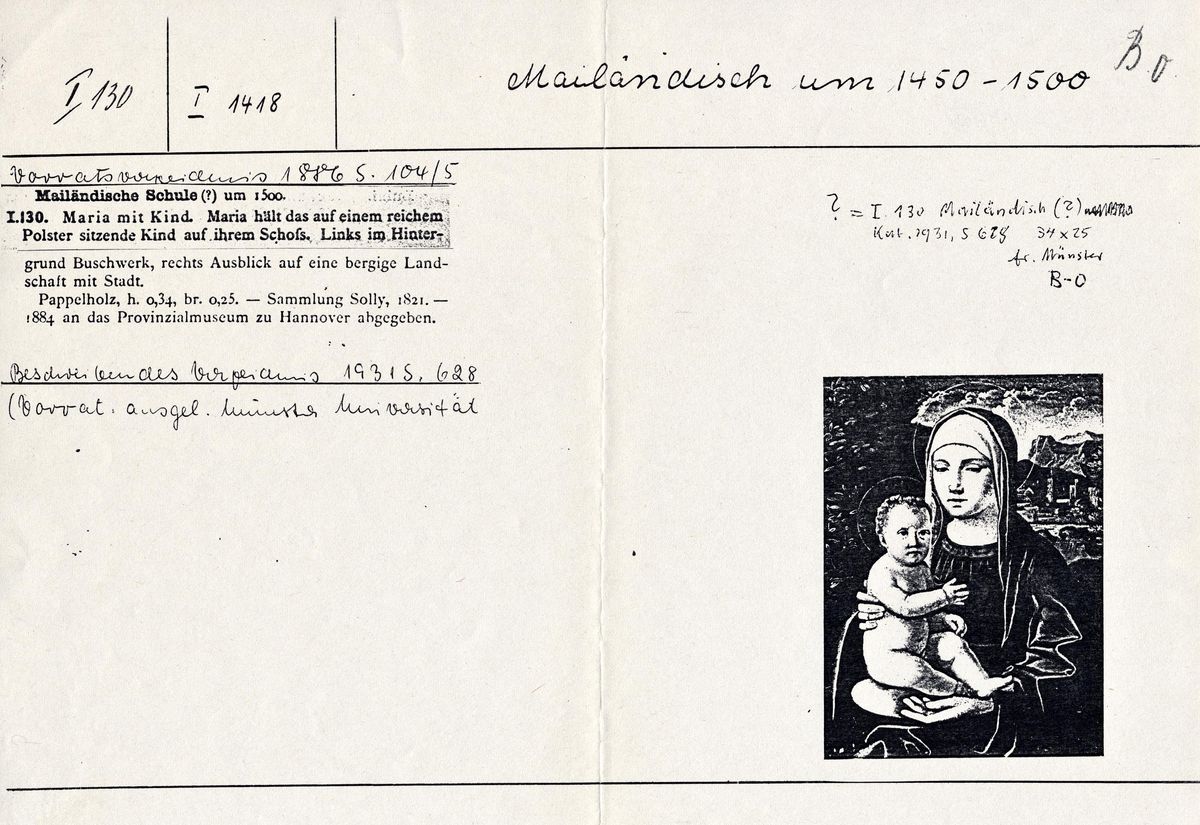 I 130
I 1418
Mailändisch um 1450-1500
B o
Vorratsverzeichnis 1886 S. 104/5
Mailändische Schule (?) um 1500.
I.130. Maria mit Kind. Maria hält das auf einem reichem
Polster sitzende Kind auf ihrem Schofs. Links im Hinter-
grund Buschwerk, rechts Ausblick auf eine bergige Land-
schaft mit Stadt.
Pappelholz, h. 0,34, br. 0,25. — Sammlung Solly, 1821. —
1884 an das Provinzialmuseum zu Hannover abgegeben.
Beschreibendes Verzeichnis 1931 S. 628
(Vorrat. ausgel. Münster Universität
? = I. 130 Mailändisch (?)
Kat. 1931, S 628 34 x 25
fr. Münster
B-O